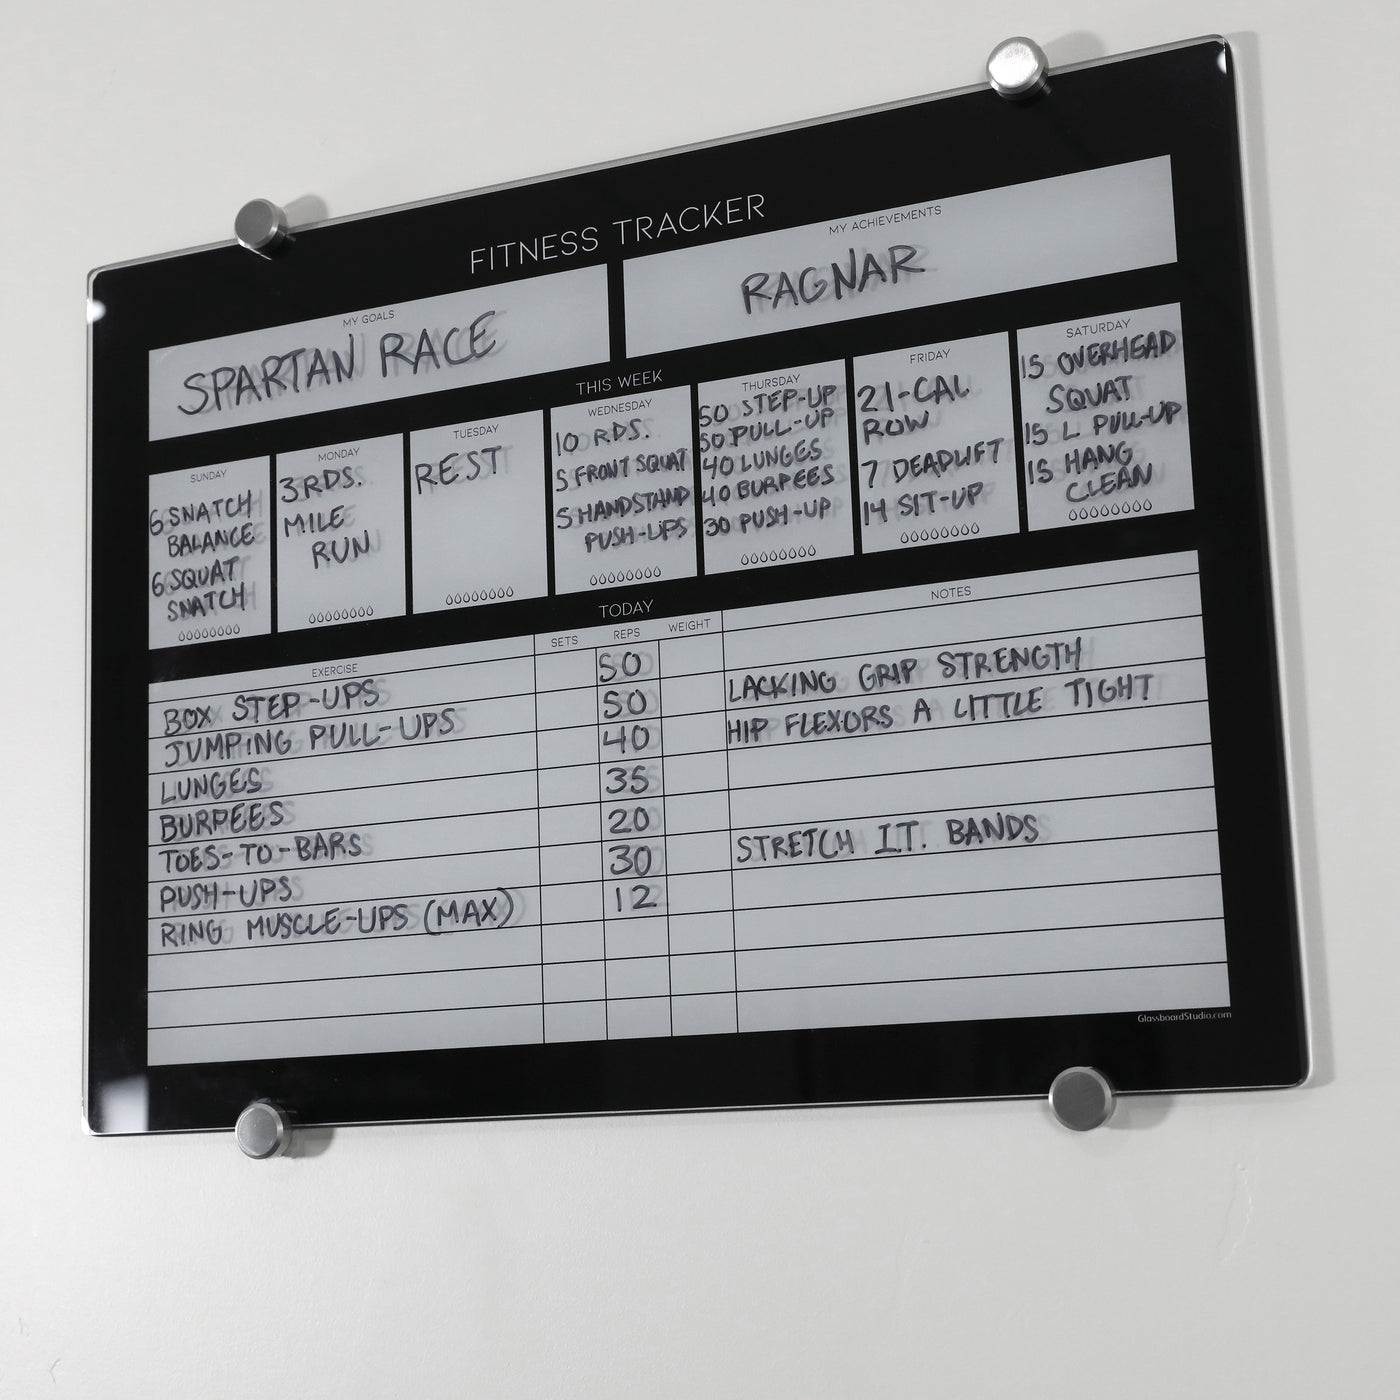 FITNESS TRACKER
MY GOALS
SPARTAN RACE
MY ACHIEVEMENTS
RAGNAR
THIS WEEK
SUNDAY
6 SNATCH
BALANCE
6 SQUAT
SNATCH
MONDAY
3 RDS.
MILE
RUN
TUESDAY
REST
WEDNESDAY
10 RDS.
5 FRONT SQUAT
5 HANDSTAND
PUSH-UPS
THURSDAY
50 STEP-UP
50 PULL-UP
40 LUNGES
40 BURPEES
30 PUSH-UP
FRIDAY
21-CAL
ROW
7 DEADLIFT
14 SIT-UP
SATURDAY
15 OVERHEAD
SQUAT
15 L PULL-UP
15 HANG
CLEAN
TODAY
EXERCISE SETS REPS WEIGHT NOTES
BOX STEP-UPS 50
JUMPING PULL-UPS 50 LACKING GRIP STRENGTH
LUNGES 40 HIP FLEXORS A LITTLE TIGHT
BURPEES 35
TOES-TO-BARS 20
PUSH-UPS 30 STRETCH I.T. BANDS
RING MUSCLE-UPS (MAX) 12
GlassboardStudio.com